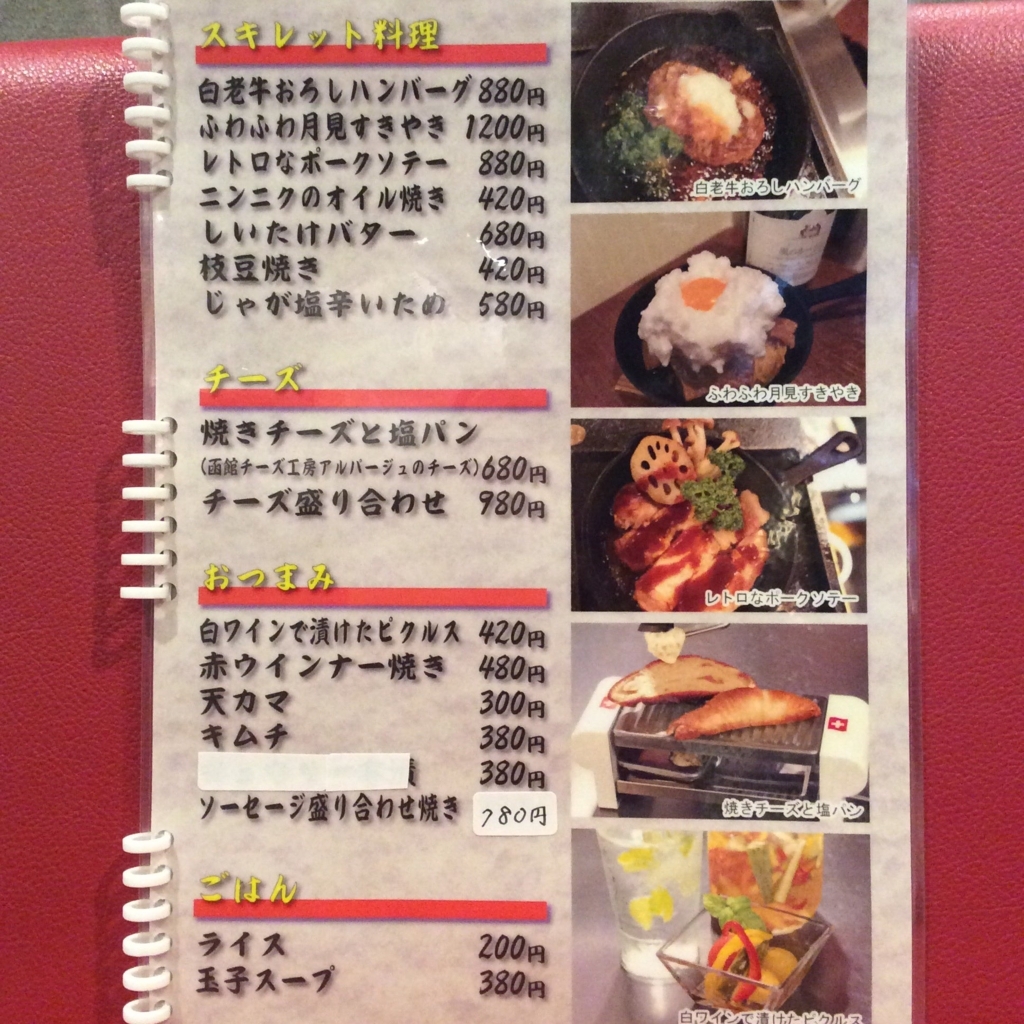 スキレット料理
白老牛おろしハンバーグ 880円
ふわふわ月見すきやき 1200円
レトロなポークソテー 880円
ニンニクのオイル焼き 420円
しいたけバター 680円
枝豆焼き 420円
じゃが塩辛いため 580円
チーズ
焼きチーズと塩パン
(函館チーズ工房アルパージュのチーズ) 680円
チーズ盛り合わせ 980円
おつまみ
白ワインで漬けたピクルス 420円
赤ウインナー焼き 480円
天カマ 300円
キムチ 380円
漬 380円
ソーセージ盛り合わせ焼き 780円
ごはん
ライス 200円
玉子スープ 380円
白老牛おろしハンバーグ
ふわふわ月見すきやき
レトロなポークソテー
焼きチーズと塩パン
白ワインで漬けたピクルス